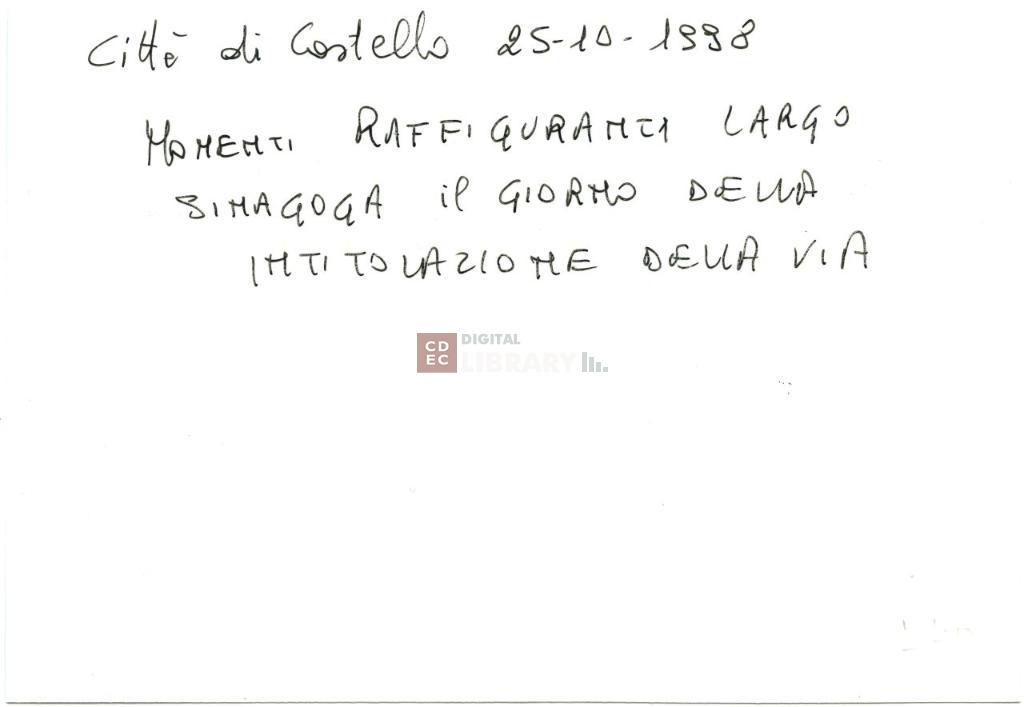 Città di Castello 25-10-1998
MOMENTI RAFFIGURANTI LARGO
SINAGOGA il GIORNO DELLA
INTITOLAZIONE DELLA VIA
CDEC DIGITAL LIBRARY